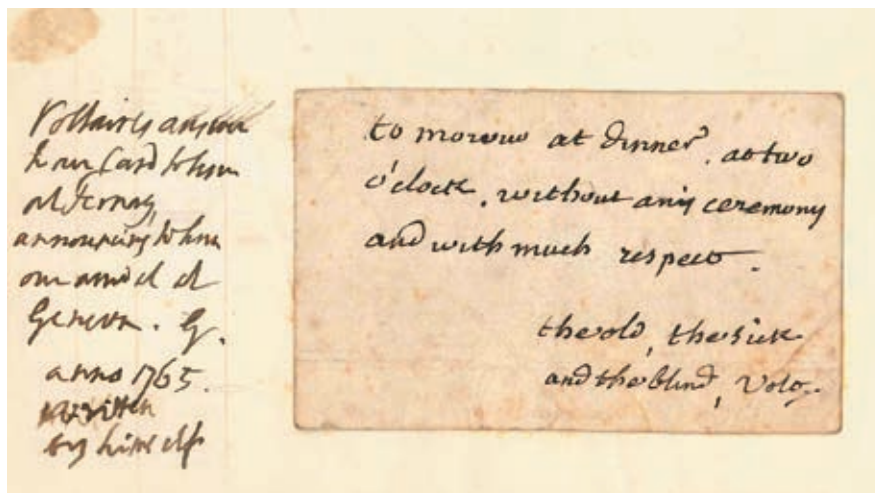 Voltaire's answer
to our Card to him
at Ferney,
announcing to him
our arrival at
Geneva. G.
anno 1765.
written
by himself
to morow at dinner, at two
o'clock, without any ceremony
and with much respect.
the old, the sick
and the blind, Volt.